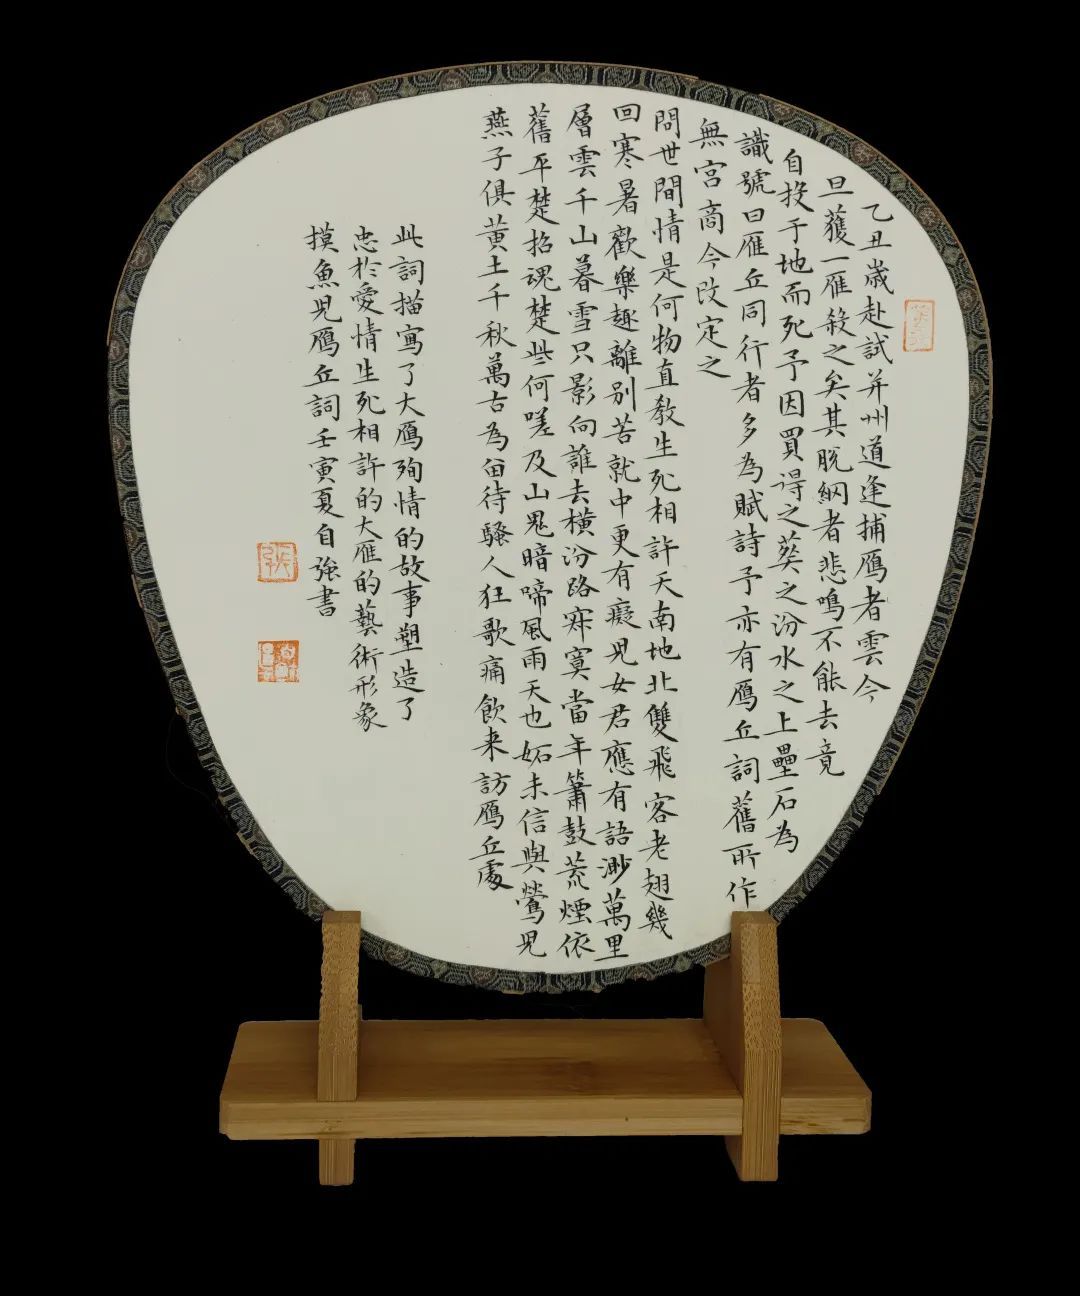 乙丑歲赴試并州道逢捕鴈者雲今
旦獲一雁殺之矣其脫網者悲鳴不能去竟
自投于地而死予因買得之葬之汾水之上壘石為
識號曰雁丘同行者多為賦詩予亦有鴈丘詞舊所作
無宮商今改定之
問世間情是何物直教生死相許天南地北雙飛客老翅幾
回寒暑歡樂趣離別苦就中更有癡兒女君應有語渺萬里
層雲千山暮雪只影向誰去橫汾路寂寞當年簫鼓荒煙依
舊平楚招魂楚些何嗟及山鬼暗啼風雨天也妬未信與鶯兒
燕子俱黃土千秋萬古為留待騷人狂歌痛飲来訪鴈丘處
此詞描寫了大鴈殉情的故事塑造了
忠於愛情生死相許的大雁的藝術形象
摸魚兒鴈丘詞壬寅夏自強書
張